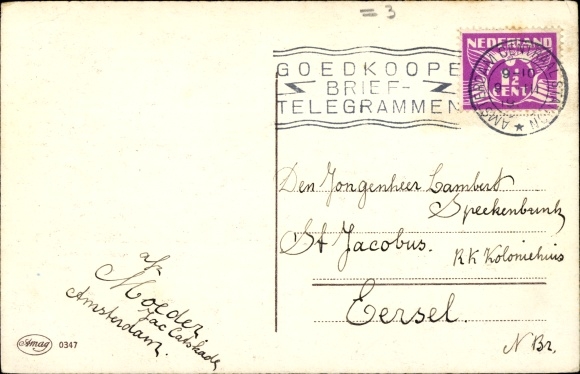 = 3
NEDERLAND
1½
CENT
GOEDKOOPE
BRIEF-
TELEGRAMMEN
AMSTERDAM CENTRAAL STATION
9-10
Den Jongenheer Lambert
Speekenbrink
St Jacobus. RK Koloniehuis
Eersel.
N Br.
afz
Moeder
Jac Catskade
Amsterdam.
Amag 0347